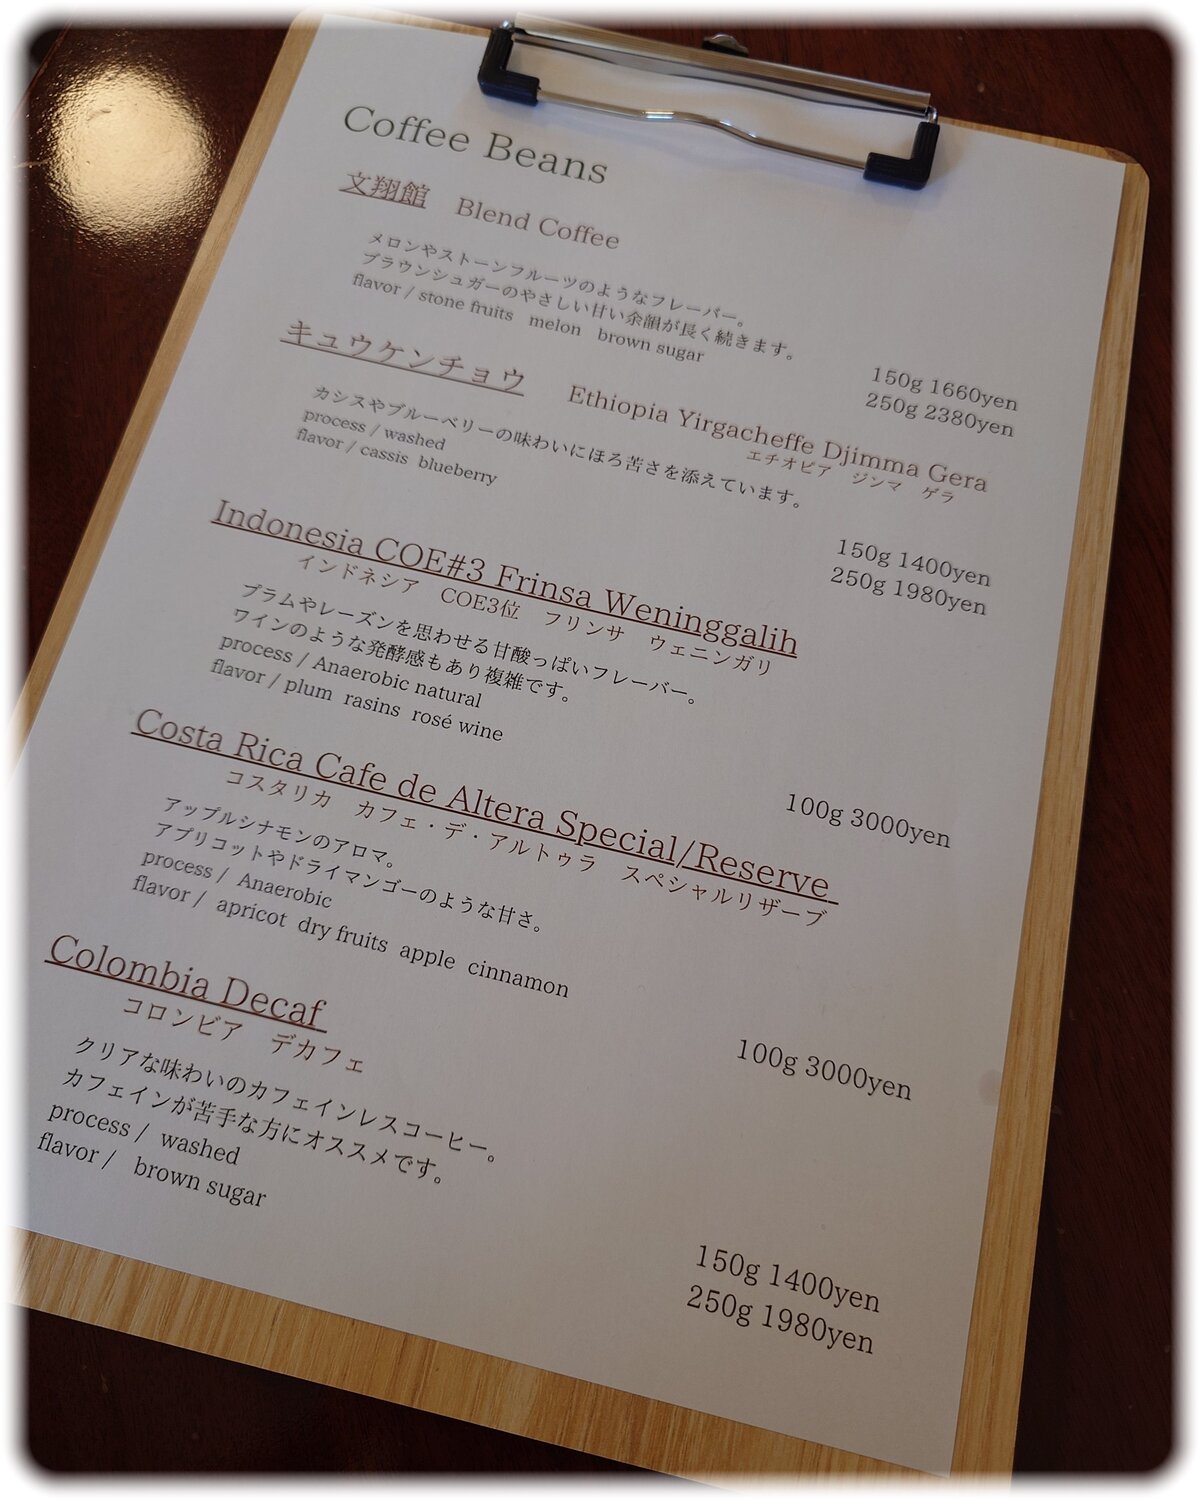 Coffee Beans
文翔館 Blend Coffee
メロンやストーンフルーツのようなフレーバー。
ブラウンシュガーのやさしい甘い余韻が長く続きます。
flavor / stone fruits melon brown sugar
150g 1660yen
250g 2380yen
キュウケンチョウ Ethiopia Yirgacheffe Djimma Gera
エチオピア ジンマ ゲラ
カシスやブルーベリーの味わいにほろ苦さを添えています。
process / washed
flavor / cassis blueberry
150g 1400yen
250g 1980yen
Indonesia COE#3 Frinsa Weninggalih
インドネシア COE3位 フリンサ ウェニンガリ
プラムやレーズンを思わせる甘酸っぱいフレーバー。
ワインのような発酵感もあり複雑です。
process / Anaerobic natural
flavor / plum rasins rosé wine
100g 3000yen
Costa Rica Cafe de Altera Special/Reserve
コスタリカ カフェ・デ・アルトゥラ スペシャルリザーブ
アップルシナモンのアロマ。
アプリコットやドライマンゴーのような甘さ。
process / Anaerobic
flavor / apricot dry fruits apple cinnamon
100g 3000yen
Colombia Decaf
コロンビア デカフェ
クリアな味わいのカフェインレスコーヒー。
カフェインが苦手な方にオススメです。
process / washed
flavor / brown sugar
150g 1400yen
250g 1980yen